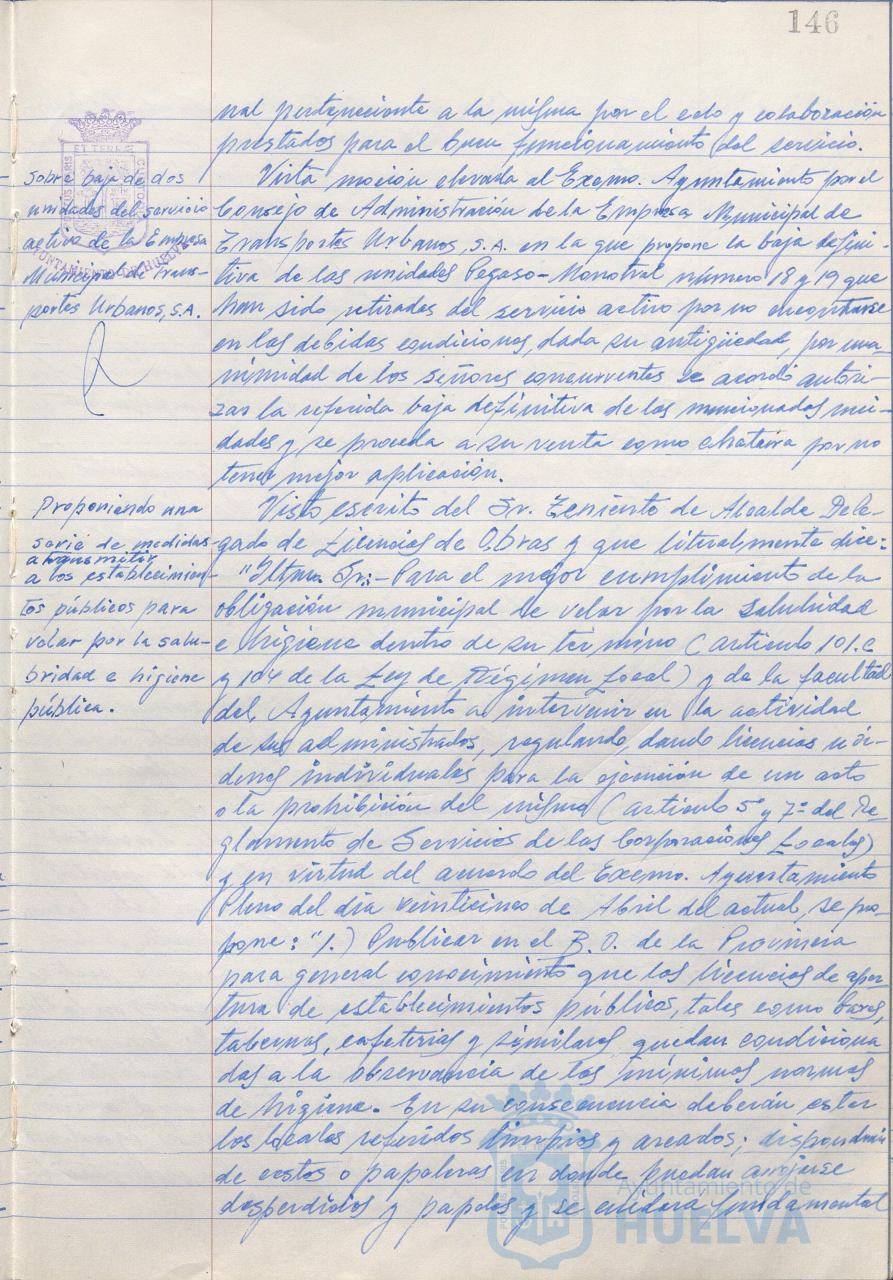 146
nal perteneciente a la misma por el celo y colaboración
prestados para el buen funcionamiento del servicio.
Sobre baja de dos
unidades del servicio
activo de la Empresa
Municipal de Trans-
portes Urbanos, S.A.
Vista moción elevada al Excmo. Ayuntamiento por el
Consejo de Administración de la Empresa Municipal de
Transportes Urbanos, S.A. en la que propone la baja defini-
tiva de las unidades Pegaso-Monotral número 18 y 19 que
han sido retiradas del servicio activo por no encontrarse
en las debidas condiciones, dada su antigüedad, por una-
nimidad de los señores concurrentes se acordó autori-
zar la referida baja definitiva de las mencionadas uni-
dades y se proceda a su venta como chatarra por no
tener mejor aplicación.
Proponiendo una
serie de medidas
a transmitir
a los establecimien-
tos públicos para
velar por la salu-
bridad e higiene
pública.
Visto escrito del Sr. Teniente de Alcalde Dele-
gado de Licencias de Obras y que literalmente dice:
"Iltmo. Sr.:- Para el mejor cumplimiento de la
obligación municipal de velar por la salubridad
e higiene dentro de su término (artículo 101.c
y 104 de la Ley de Régimen Local) y de la facultad
del Ayuntamiento a intervenir en la actividad
de sus administrados, regulando, dando licencias u ór-
denes individuales para la ejecución de un acto
o la prohibición del mismo (artículo 5º y 7º del Re-
glamento de Servicios de las Corporaciones Locales)
y en virtud del acuerdo del Excmo. Ayuntamiento
Pleno del día veinticinco de Abril del actual, se pro-
pone: "1.) Publicar en el B.O. de la Provincia
para general conocimiento que las licencias de aper-
tura de establecimientos públicos, tales como bares,
tabernas, cafeterías y similares, quedan condiciona
das a la observancia de las mínimas normas
de higiene. En su consecuencia deberán estar
los locales referidos limpios y aireados; dispondrán
de cestos o papeleras en donde puedan arrojarse
desperdicios y papeles y se cuidará fundamental
Ayuntamiento de
HUELVA